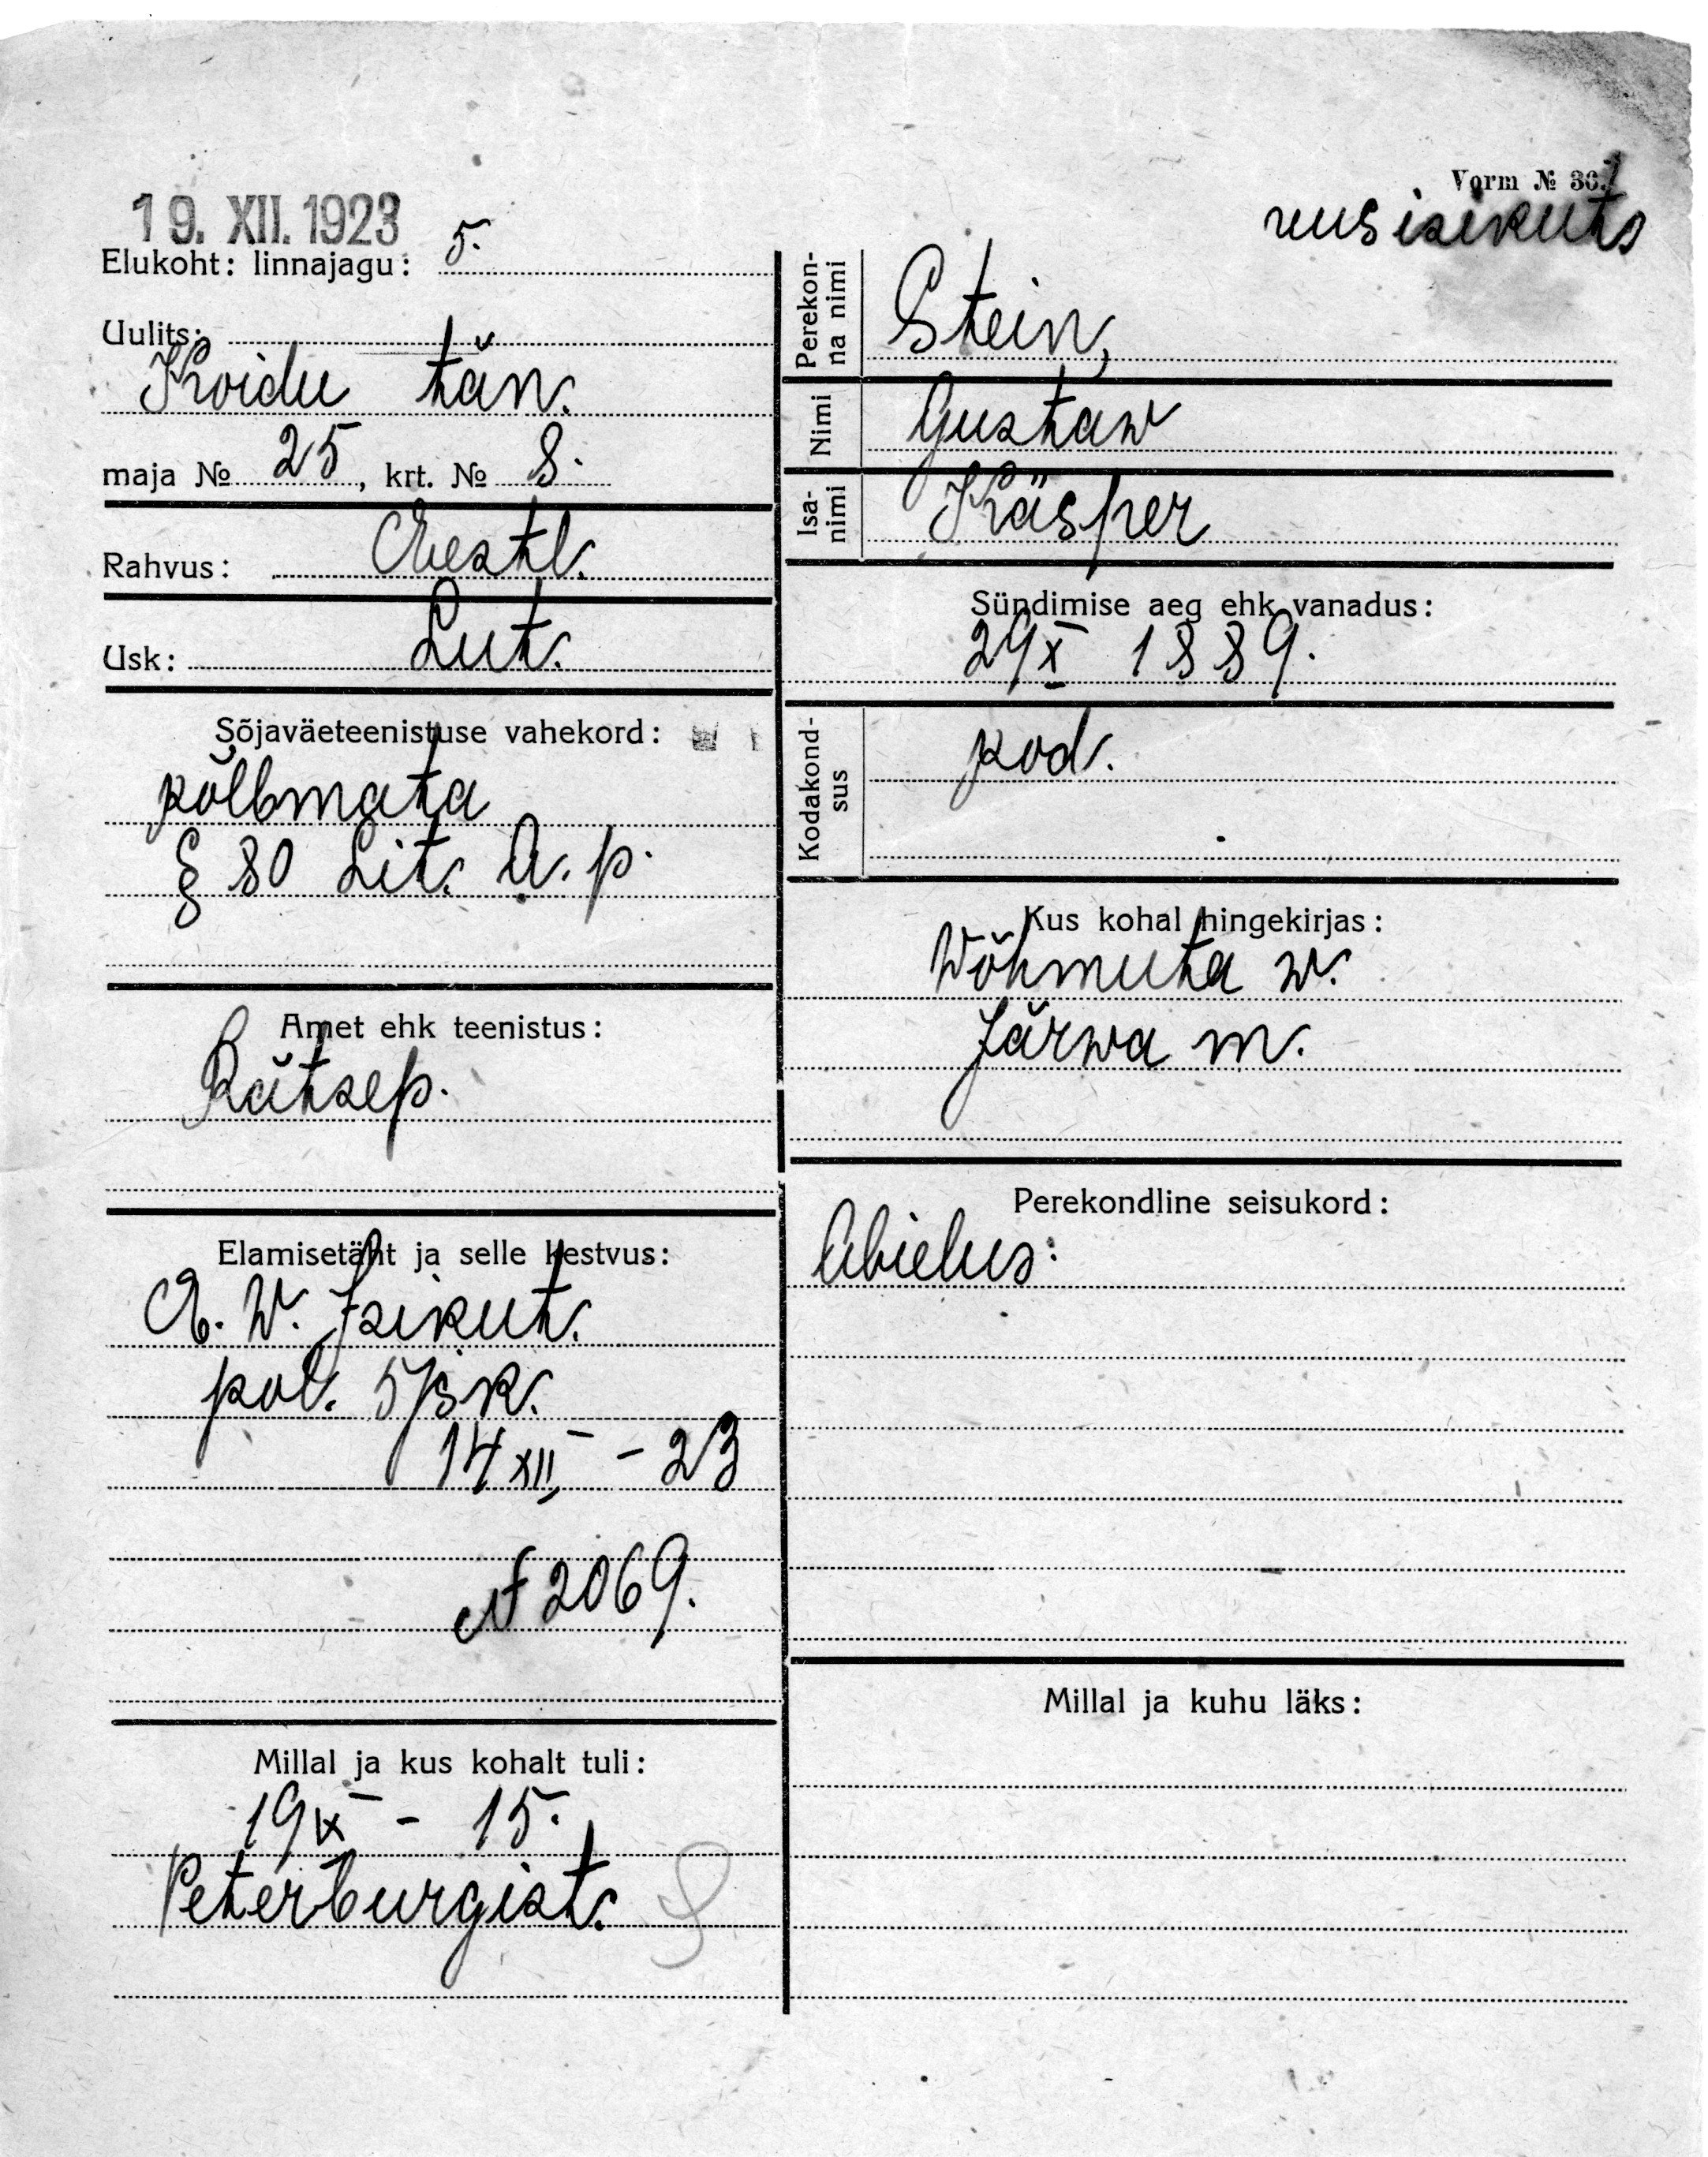 Vorm № 36.
uus isikut.
19. XII. 1923
Elukoht: linnajagu: 5.
Uulits:
Koidu tän.
maja № 25, krt. № 8.
Rahvus: Eestl.
Usk: Lut.
Sõjaväeteenistuse vahekord:
kõlbmata
§ 80 Lit. A. p.
Amet ehk teenistus:
Rätsep.
Elamisetäht ja selle kestvus:
E. W. Isikut.
pol. 5 jsk.
14 XII - 23
№ 2069.
Millal ja kus kohalt tuli:
19 IX - 15.
Peterburgist.
Perekon-
na nimi
Stein,
Nimi Gustaw
Isa-
nimi
Käsper
Sündimise aeg ehk vanadus:
29 X 1889.
Kodakond-
sus
kod.
Kus kohal hingekirjas:
Wõhmuta w.
Järwa m.
Perekondline seisukord:
Abielus:
Millal ja kuhu läks: